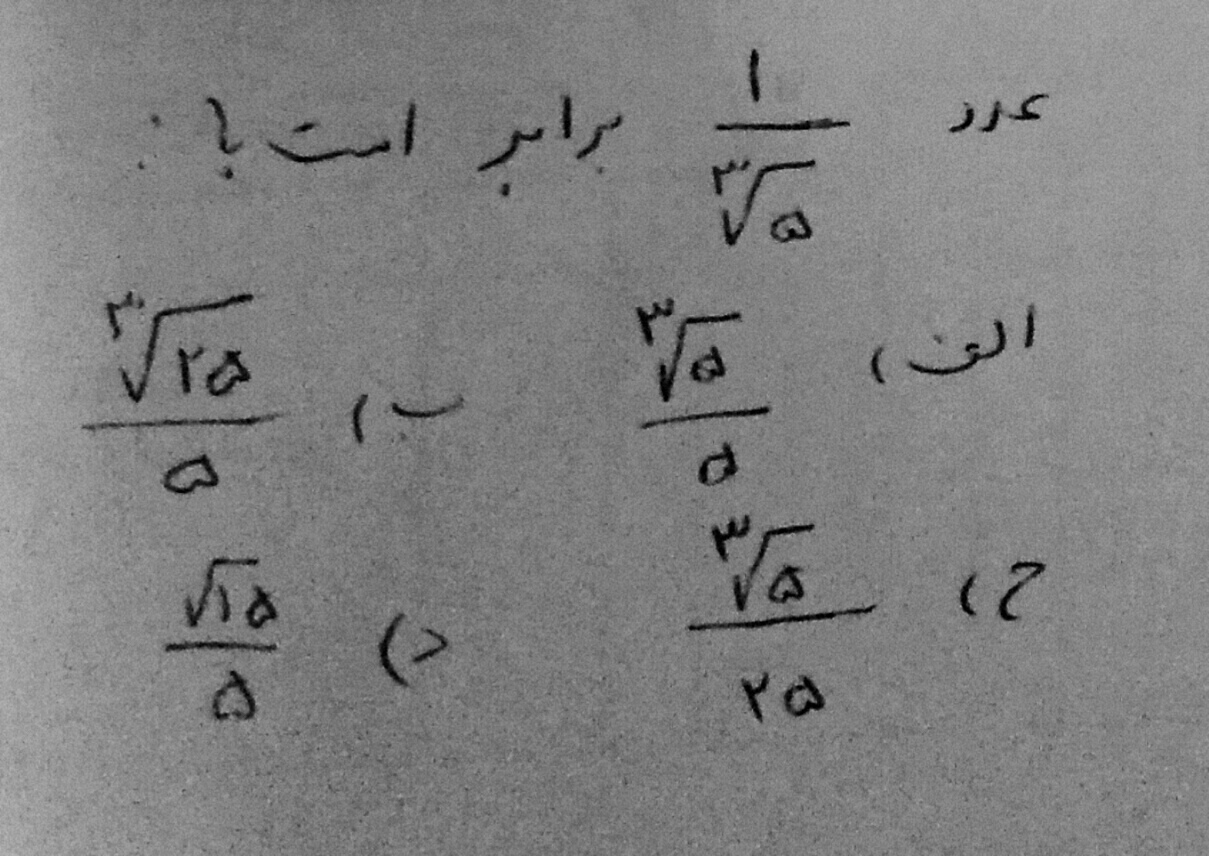 عدد ۱/∛۵ برابر است با :
الف) ∛۵/۵ ب) ∛۲۵/۵
ج) ∛۵/۲۵ د) √۱۵/۵